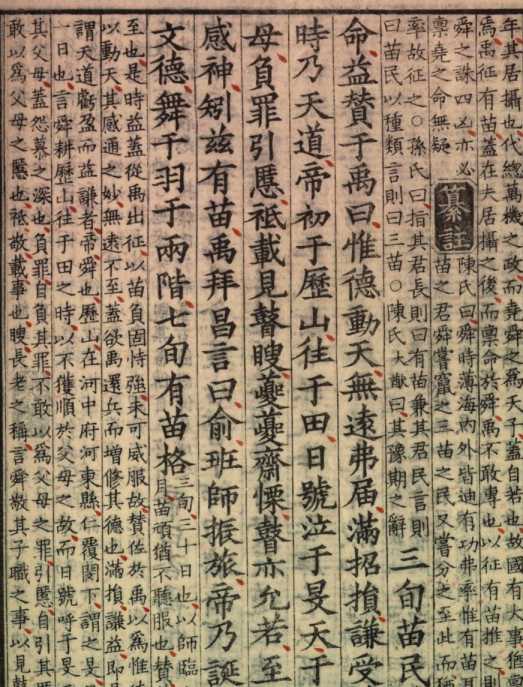 年其居攝也代總萬機之政而堯舜之爲天子蓋自若也故國有大事猶稟
焉禹征有苗蓋在夫居攝之後而稟命於舜禹不敢專也以征有苗推之則
舜之誅四凶亦必
稟堯之命無疑
纂註
陳氏曰舜時薄海內外皆迪有功弗率惟有苗耳
苗之君舜嘗竄之三苗之民又嘗分之至此而稱
率故征之○孫氏曰指其君長則曰有苗兼其君民言則
曰苗民以種類言則曰三苗○陳氏大猷曰其豫期之辭
三旬苗民
命益贊于禹曰惟德動天無遠弗届滿招損謙受
時乃天道帝初于歷山往于田日號泣于旻天于
母負罪引慝祗載見瞽瞍夔夔齋慄瞽亦允若至
感神矧兹有苗禹拜昌言曰俞班師振旅帝乃誕
文德舞干羽于兩階七旬有苗格
三旬三十日也以師臨
月苗頑猶不聽服也贊
至也是時益蓋從禹出征以苗負固恃強未可威服故贊佐於禹以爲惟
以動天其感通之妙無遠不至蓋欲禹還兵而增修其德也滿損謙益即
謂天道虧盈而益謙者帝舜也歷山在河中府河東縣仁覆閔下謂之旻
一日也言舜耕歷山往于田之時以不獲順於父母之故而日號呼于旻
其父母蓋怨慕之深也負罪自負其罪不敢以爲父母之罪引慝自引其
敢以爲父母之慝也祗敬載事也瞍長老之稱言舜敬其子職之事以見瞽